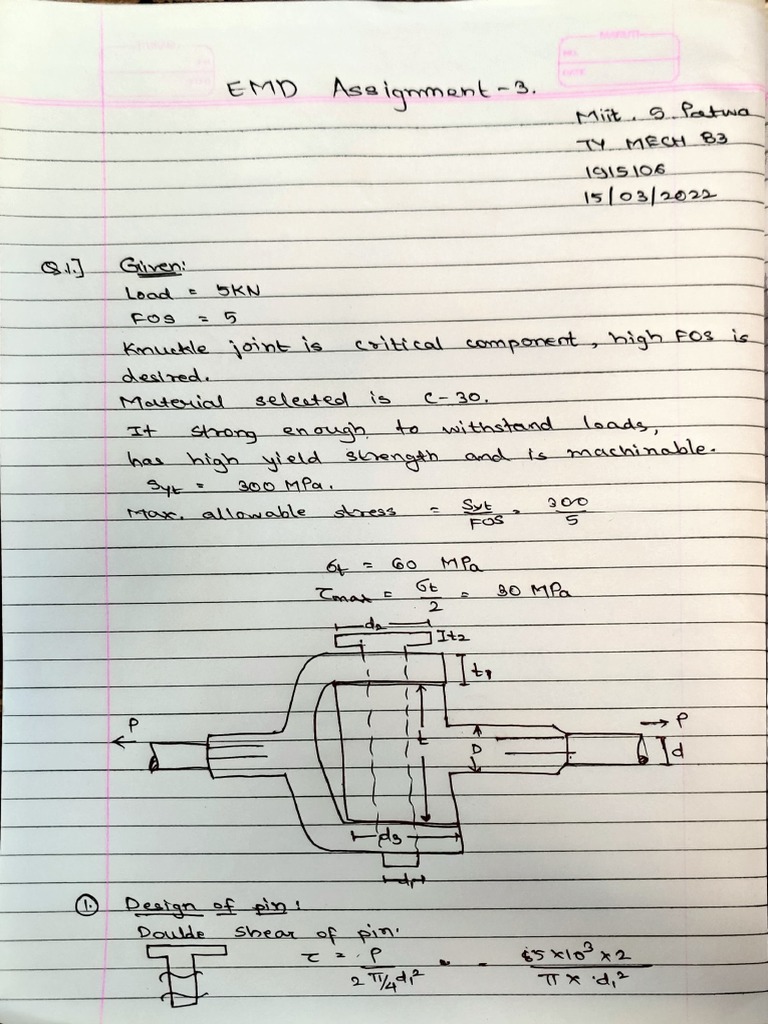 EMD Assignment-3.
MARUTI
Miit. S. Patwa
TY MECH B3
DATE
1915106
15/03/2022
Q.1.] Given:
Load = 5KN
FOS = 5
Knuckle joint is critical component, high FOS is
desired.
Material selected is C-30.
It strong enough to withstand loads,
has high yield strength and is machinable.
Syt = 300 MPa.
Max. allowable stress = Syt/FOS = 300/5
σt = 60 MPa
τmax = σt/2 = 30 MPa
d2
t2
t1
P
P
t
D
d
d3
d1
1. Design of pin:
Double shear of pin.
τ = P/(2 π/4 d1²) = (5×10³×2)/(π × d1²)